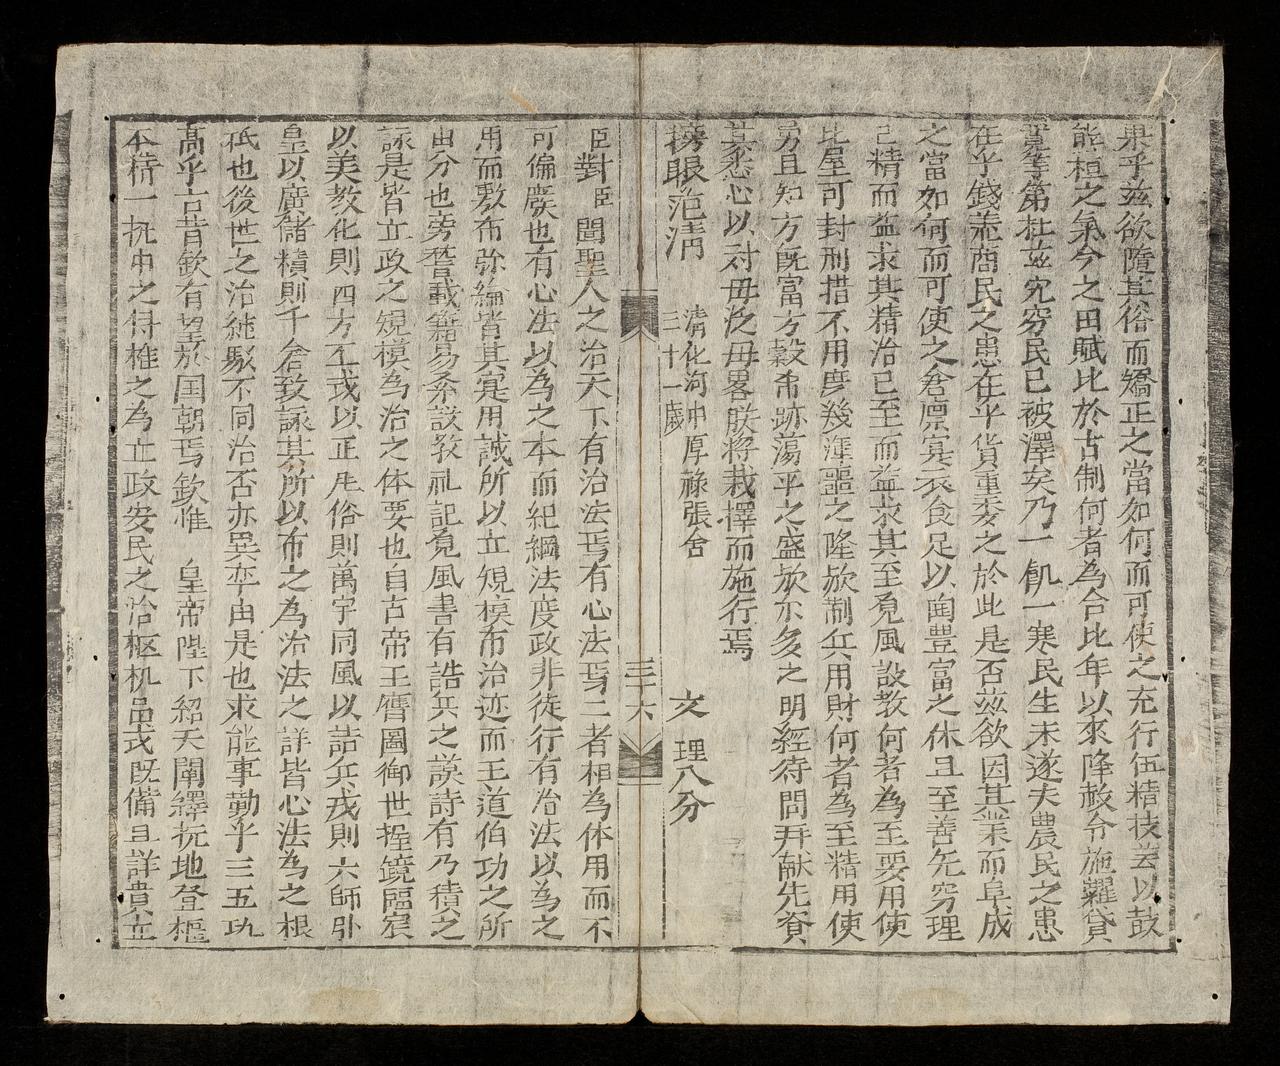 果乎茲欲隨其俗而矯正之當如何而可使之充行伍精技芸以鼓
能桓之氣今之田賦比於古制何者為合比年以來降赦令施糶貸
寬等第杜並究窮民已被澤矣乃一飢一寒民生未遂夫農民之患
在乎錢羨商民之患在乎貨重委之於此是否茲欲因其業而阜成
之當如何而可使之倉廩寔衣食足以陶豊富之休且至善先窮理
己精而益求其精治已至而益求其至覓風設教何者為至要用使
比屋可封刑措不用庋幾渾噩之隆欤制兵用財何者為至精用使
勇且知方既富方穀希跡蕩平之盛欤尔多之明經待問并献先資
其悉心以対毋泛毋畧朕將裁擇而施行焉
榜眼范清
清化河中厚祿張舍
三十一歲
文理八分
三十六
臣對臣聞聖人之治天下有治法焉有心法焉二者相為体用而不
可偏廢也有心法以為之本而紀綱法度政非徒行有治法以為之
用而敷布弥綸皆其寔用誠所以立規模布治迹而王道伯功之所
由分也旁稽載籍易系設教礼記覓風書有誥兵之謨詩有乃積之
詠是皆立政之規模為治之体要也自古帝王膺圖御世握鏡臨宸
以美教化則四方丕式以正民俗則萬宇同風以詰兵戎則六師卧
皇以廣儲積則千倉致詠其所以布之為治法之詳皆心法為之根
祇也後世之治純駁不同治否亦異率由是也求能事勤乎三五功
高乎古昔欽有望於国朝焉欽惟 皇帝陛下紹天闡繹抚地登樞
本精一执中之得推之為立政安民之治枢机虽或既備且詳貴立